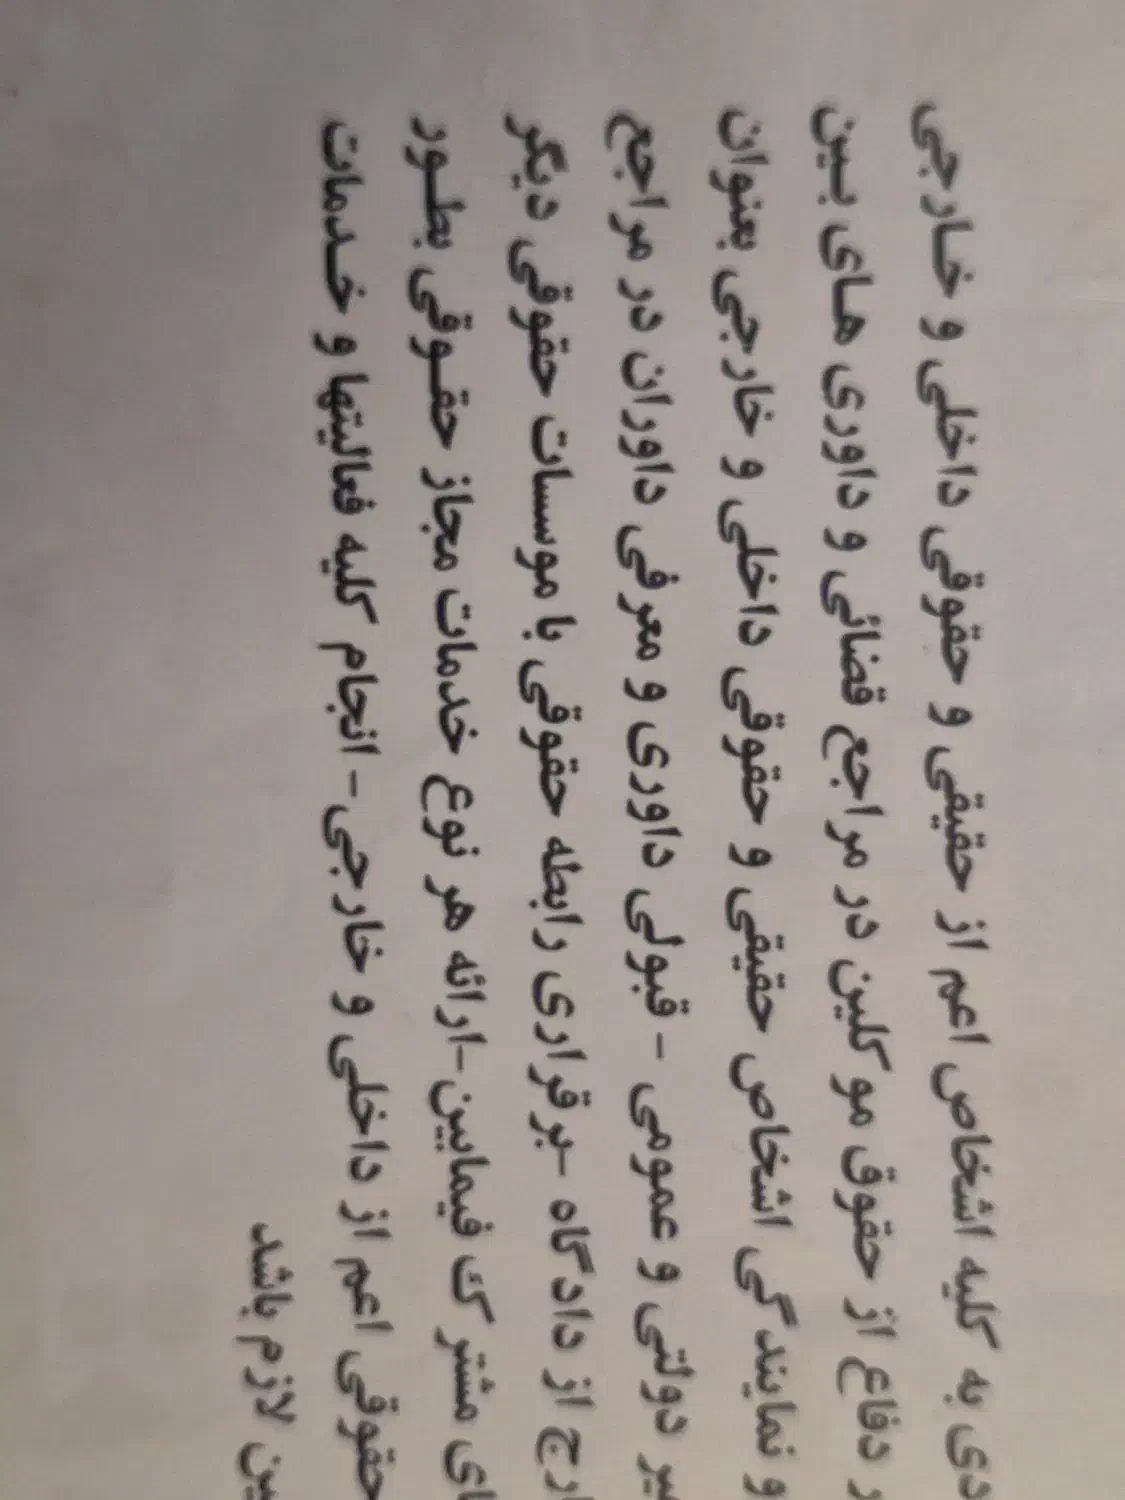 دی به کلیه اشخاص اعم از حقیقی و حقوقی داخلی و خارجی
ر دفاع از حقوق موکلین در مراجع قضائی و داوری های بین
و نمایندگی اشخاص حقیقی و حقوقی داخلی و خارجی بعنوان
یر دولتی و عمومی - قبولی داوری و معرفی داوران در مراجع
ارج از دادگاه -برقراری رابطه حقوقی با موسسات حقوقی دیگر
ای مشترک فیمابین-ارائه هر نوع خدمات مجاز حقوقی بطور
حقوقی اعم از داخلی و خارجی- انجام کلیه فعالیتها و خدمات
ین لازم باشد